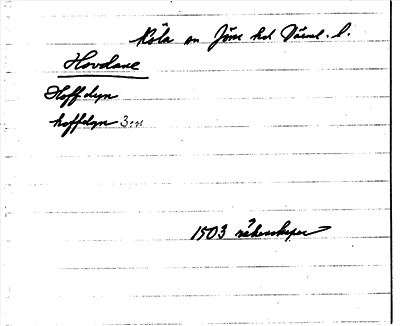 Röla sn Jöss hd Värml. l.
Hovdane
Hoffdyn
hoffdyn 3 ggr
1503 räkenskaper